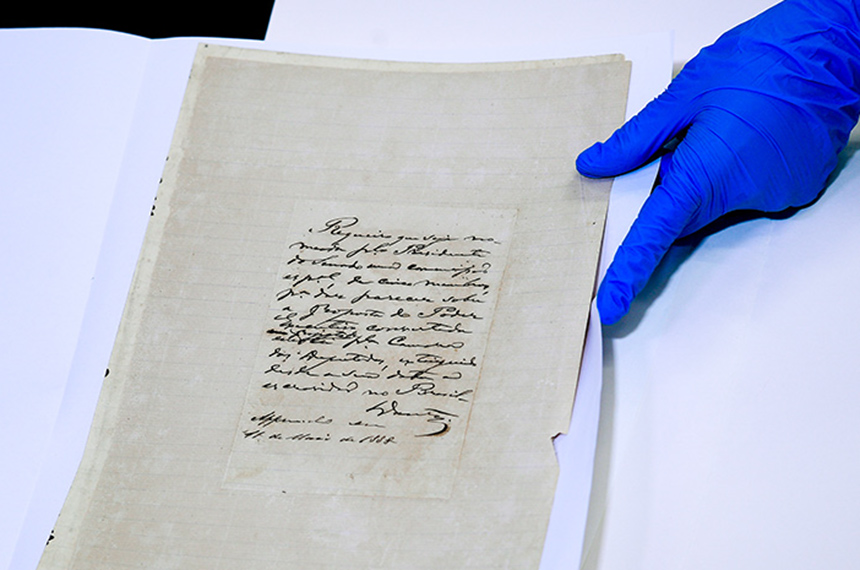 Requeiro que seja no-
meada pelo Presidente
do Senado uma commissão
espᵃˡ de cinco membros
pᵃ dar parecer sobre
a Proposta do Poder
Executivo convertida
pela Camara
dos Deputados, extinguindo
desde a sua data a
escravidão no Brasil
Dantas
em
de Maio de 1888